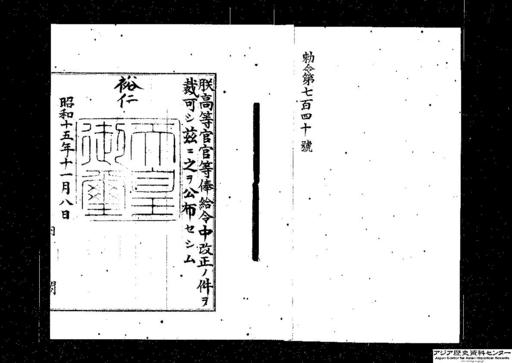 勅令第七百四十號
朕高等官官等俸給令中改正ノ件ヲ
裁可シ茲ニ之ヲ公布セシム
裕仁
天皇
御璽
昭和十五年十一月八日
内閣
アジア歴史資料センター
Japan Center for Asian Historical Records